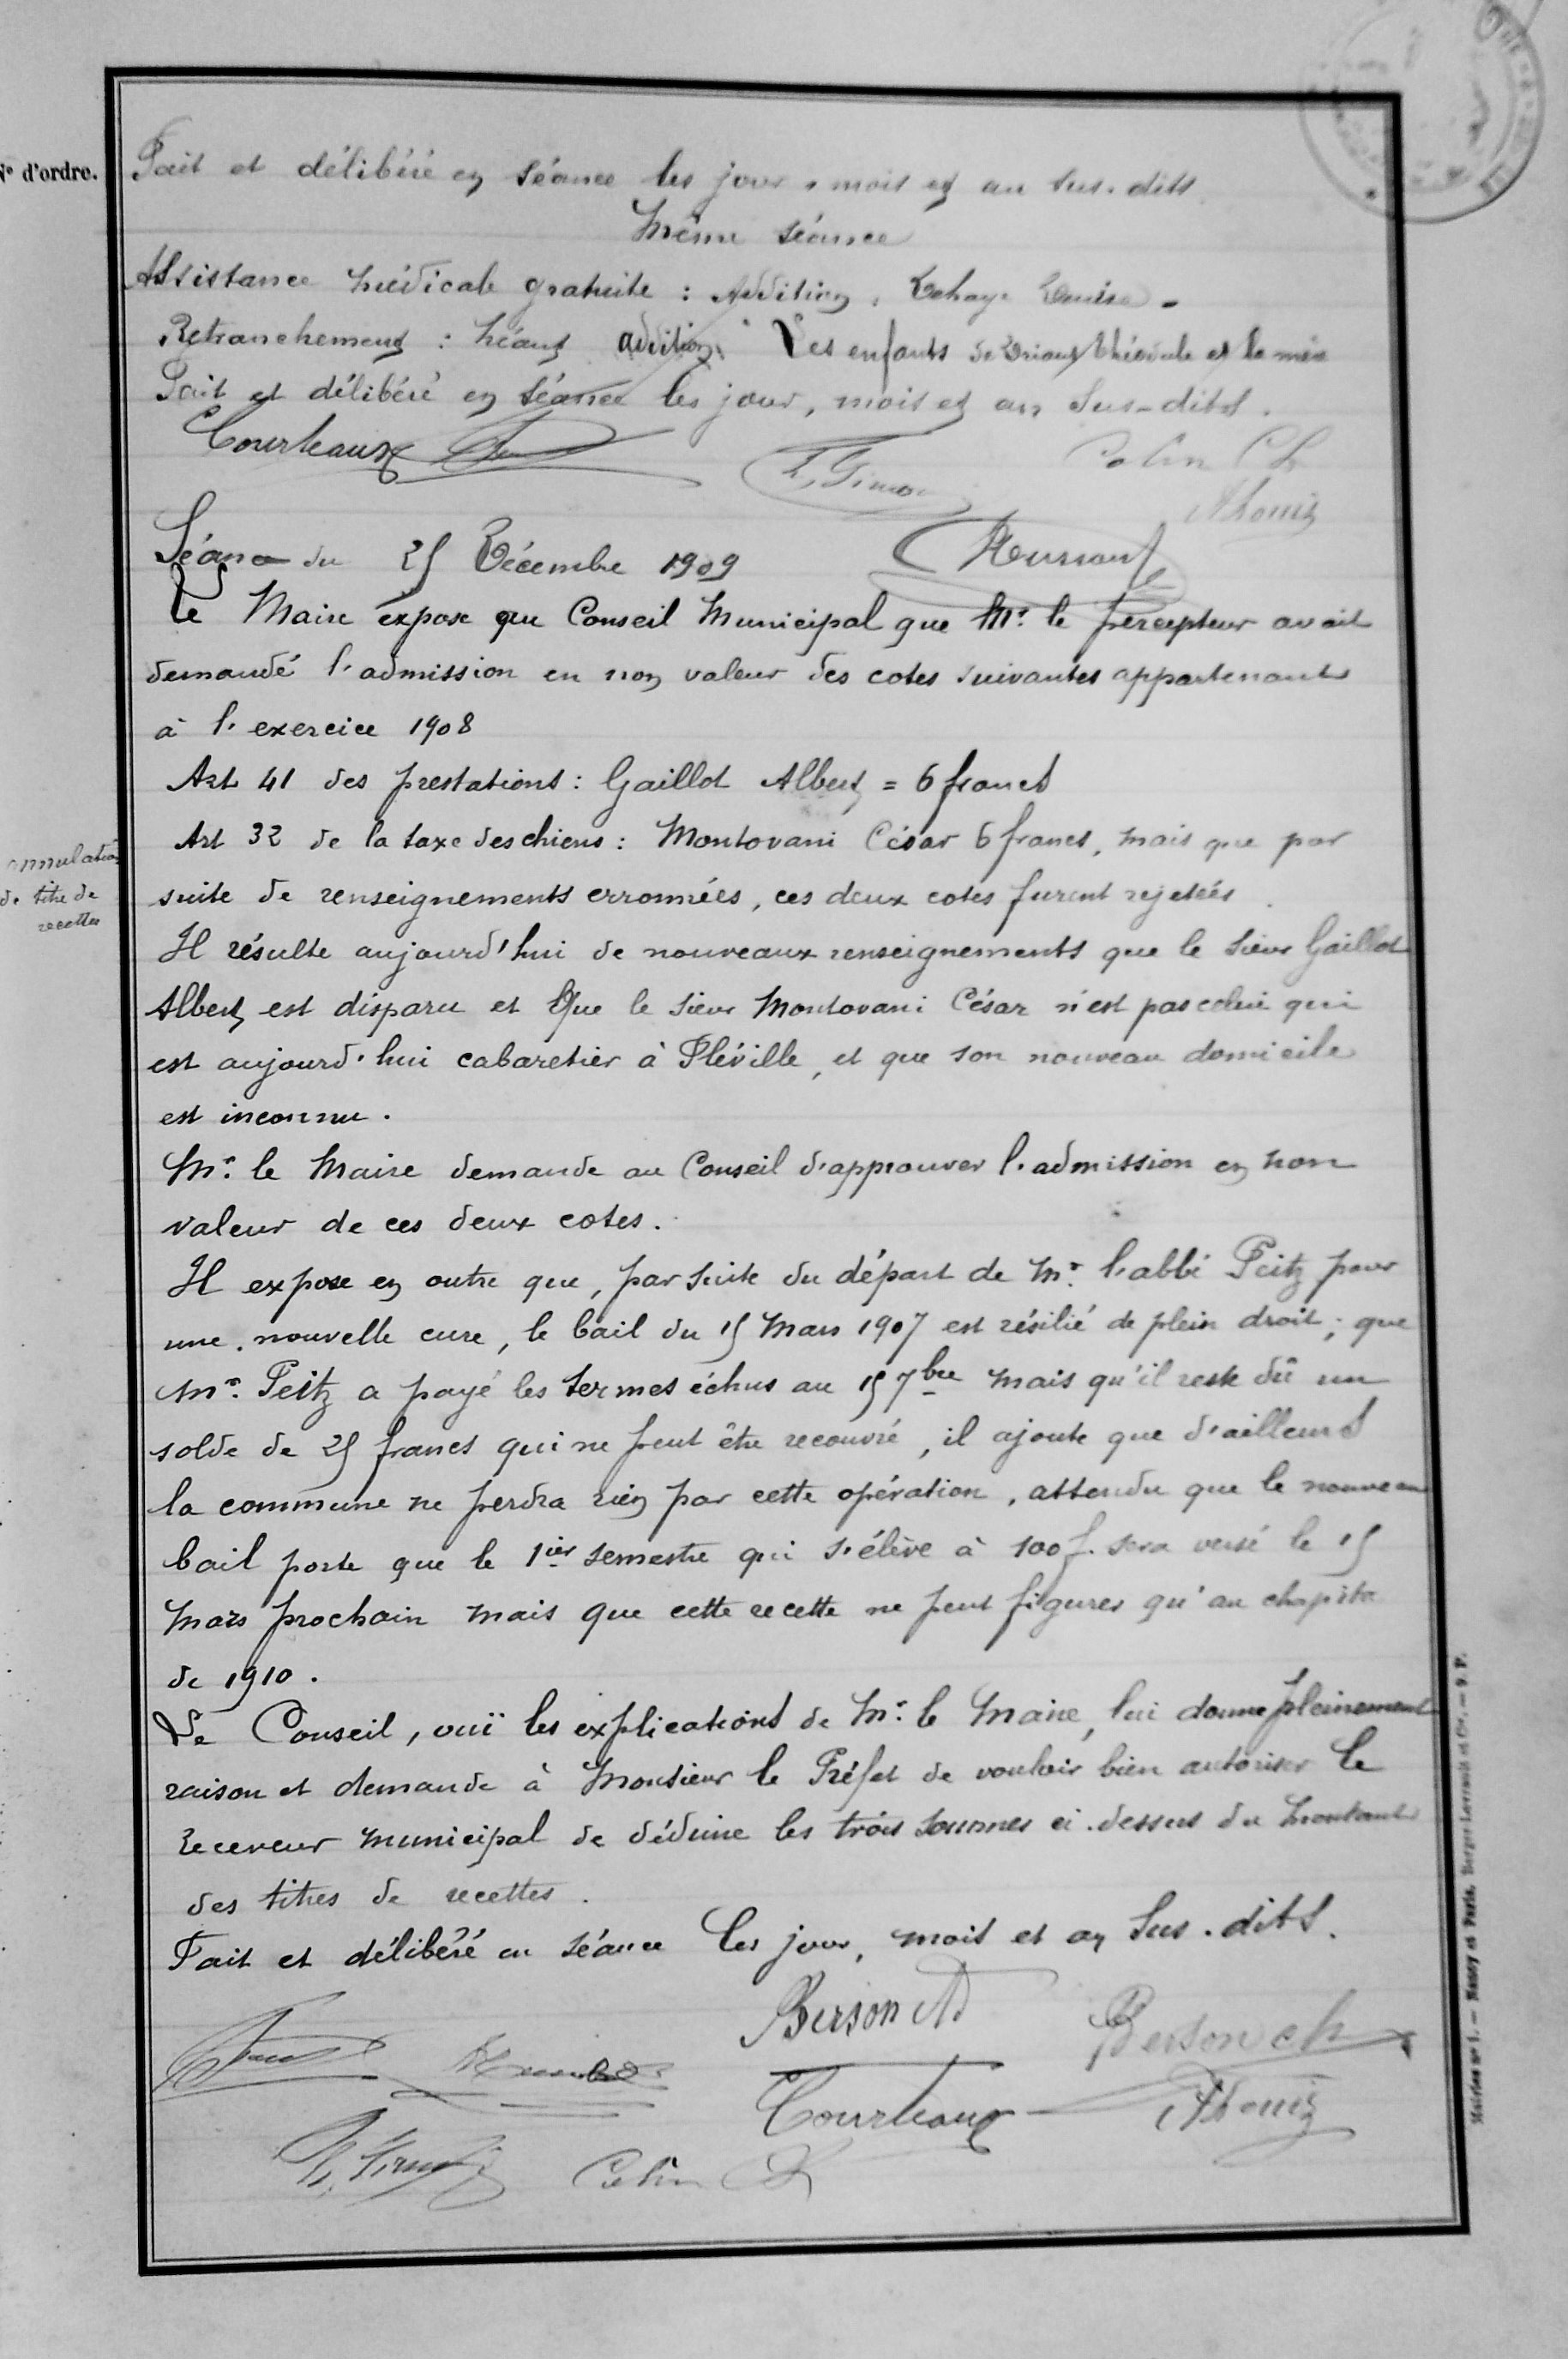 N° d'ordre.
Fait et délibéré en séance les jour, mois et an sus-dits
Même séance
Assistance médicale gratuite : Addition : Dehaye Denise -
Retranchement : Néant addition Les enfants de Théodule et la mère
Fait et délibéré en séance les jour, mois et an sus-dits.
Courteaux
Colin Ch
Séance du 25 Décembre 1909
Le Maire expose que Conseil Municipal que Mr. le percepteur avait
demandé l'admission en non valeur des cotes suivantes appartenant
à l'exercice 1908
Art 41 des prestations : Gaillot Albert = 6 francs
Art 32 de la taxe des chiens : Montovani César 6 francs, mais que par
annulation
de titre de
recettes
suite de renseignements erronnées, ces deux cotes furent rejetées.
Il résulte aujourd'hui de nouveaux renseignements que le sieur Gaillot
Albert est disparu et Que le sieur Montovani César n'est pas celui qui
est aujourd'hui cabaretier à Fléville, et que son nouveau domicile
est inconnu.
Mr. le Maire demande au Conseil d'approuver l'admission en non
valeur de ces deux cotes.
Il expose en outre que, par suite du départ de Mr. l'abbé Peitz pour
une nouvelle cure, le bail du 15 Mars 1907 est résilié de plein droit ; que
Mr. Peitz a payé les termes échus au 15 7bre mais qu'il reste dû un
solde de 25 francs qui ne peut être recouvré, il ajoute que d'ailleurs
la commune ne perdra rien par cette opération, attendu que le nouveau
bail porte que le 1ier semestre qui s'élève à 100 f. sera versé le 15
Mars prochain mais que cette recette ne peut figurer qu'au chapitre
de 1910.
Le Conseil, ouï les explications de Mr. le Maire, lui donne pleinement
raison et demande à Monsieur le Préfet de vouloir bien autoriser le
receveur municipal de déduire les trois sommes ci-dessus du montant
des titres de recettes.
Fait et délibéré en séance les jour, mois et an sus-dits.
Berson Ad
Berson ch
Courteaux
Colin Ch
Mairies n° 1. — Nancy et Paris. Berger-Levrault et Cie. — 9. F.